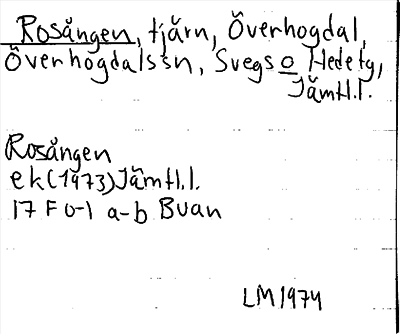 Rosången, tjärn, Överhogdal,
Överhogdals sn, Svegs o Hede tg,
Jämtl.l.
Rosången
ek (1973) Jämtl.l.
17 F 0-1 a-b Buan
LM 1974